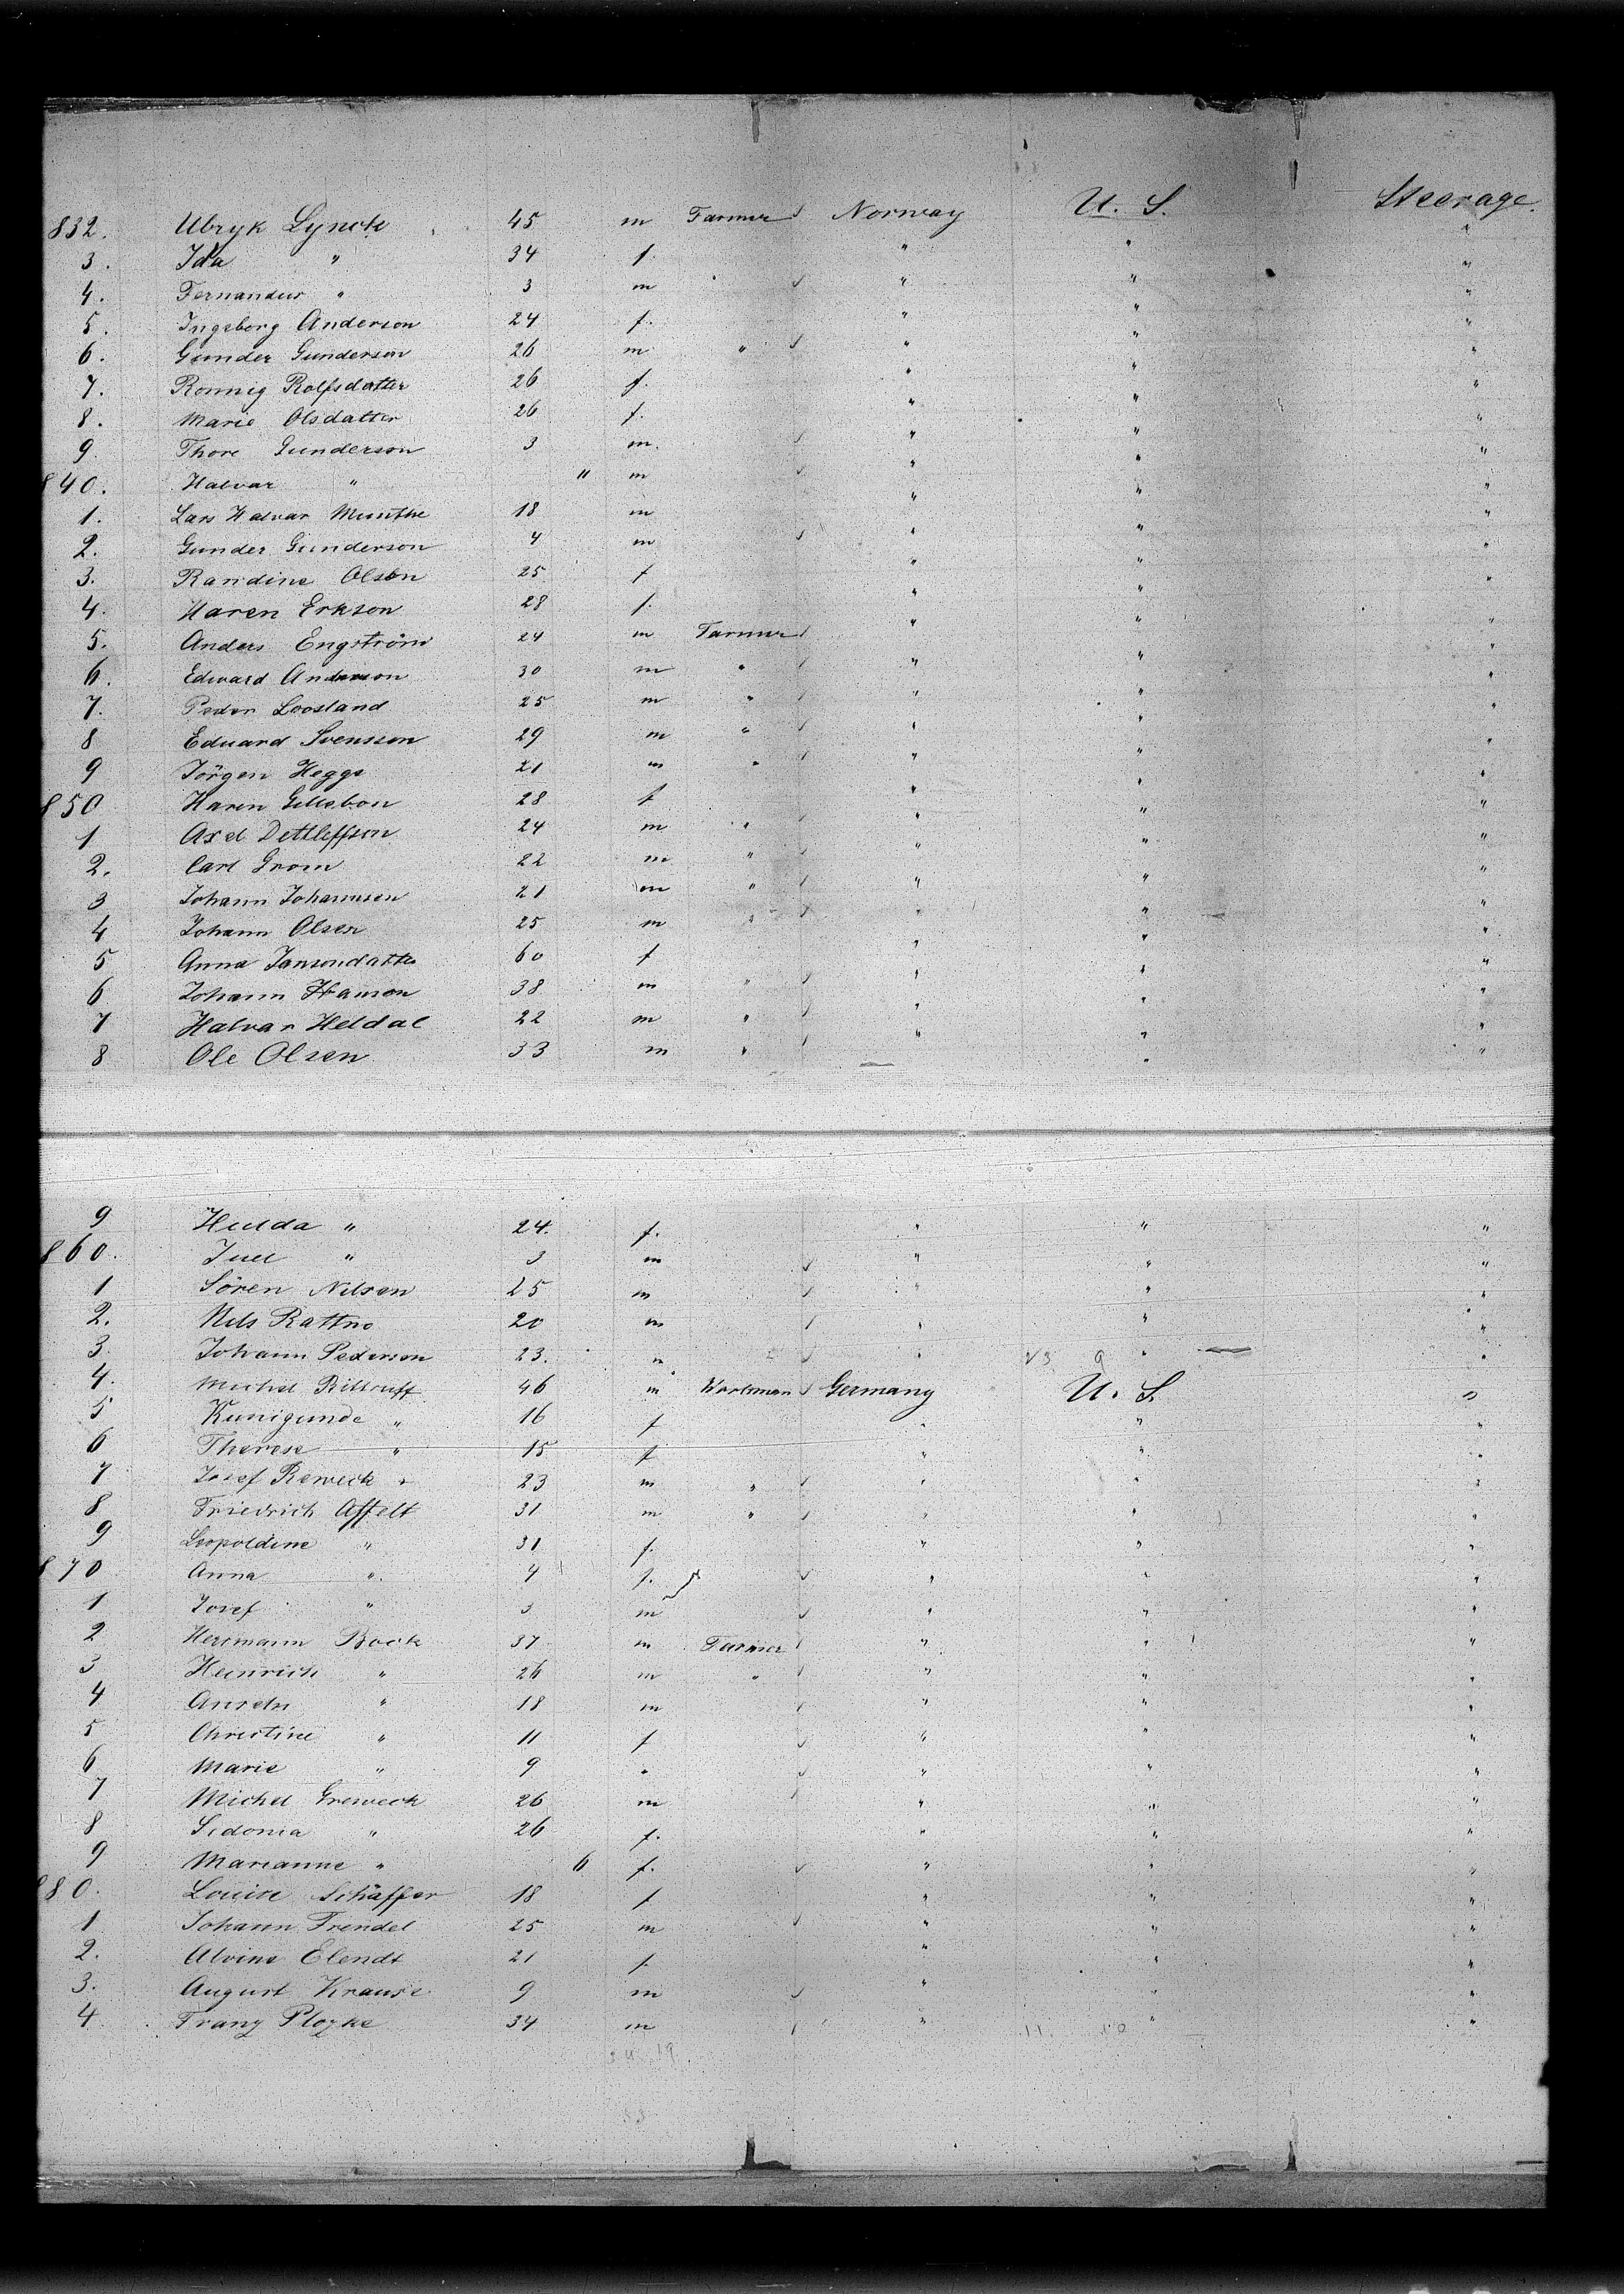 832. Ulryk Lynck 45 m Farmer Norway U. S. Steerage.
3. Ida " 34 f. " " "
4. Fernandus " 3 m " " "
5. Ingeborg Anderson 24 f. " " "
6. Gunder Gunderson 26 m " " " "
7. Ronnig Rolfsdatter 26 f. " " "
8. Marie Olsdatter 26 f. " " "
9. Thore Gunderson 3 m. " " "
840. Halvar " " m " " "
1. Lars Halvar Munthe 18 m " " "
2. Gunder Gunderson 4 m " " "
3. Randine Olson 25 f " " "
4. Karen Erkson 28 f. " " "
5. Anders Engström 24 m Farmer " " "
6. Edward Anderson 30 m " " " "
7. Peder Loosland 25 m " " " "
8 Eduard Svensson 29 m " " " "
9 Jörgen Hegge 21 m " " " "
850 Karen 28 f " " "
1 Axel Dettleffson 24 m " " " "
2. Carl Grom 22 m " " " "
3 Johann Johannsen 21 m " " " "
4 Johann Olsen 25 m " " " "
5 Anna Jansondatter 60 f " " "
6 Johann Hansen 38 m " " " "
7 Halvar Heldal 22 m " " " "
8 Ole Olsen 33 m " " " "
9 Hulda " 24. f. " " "
860. Juel " 3 m " " "
1 Sören Nilsen 25 m " " "
2. Nils Rattno 20 m " " "
3. Johann Pederson 23. m " " "
4. Michel 46 m Workman Germany U. S. "
5 Kunigunde " 16 f " " "
6 Therese " 15 f " " "
7 Josef Reweck 23 m " " " "
8 Friedrich Affelt 31 m " " " "
9 Leopoldine " 31 f. " " "
870 Anna " 4 f. " " "
1 Josef " 3 m " " "
2 Hermann Bock 37 m Farmer " " "
3 Heinrich " 26 m " " " "
4 " 18 m " " "
5 Christine " 11 f " " "
6 Marie " 9 " " " "
7 Michel Greweck 26 m " " "
8 Sidonia " 26 f. " " "
9 Marianne " 6 f. " " "
880. Louise Schäffer 18 f " " "
1 Johann Trendel 25 m " " "
2. Alvine Elendt 21 f " " "
3. August Krause 9 m " " "
4 Franz Plozke 34 m " " "